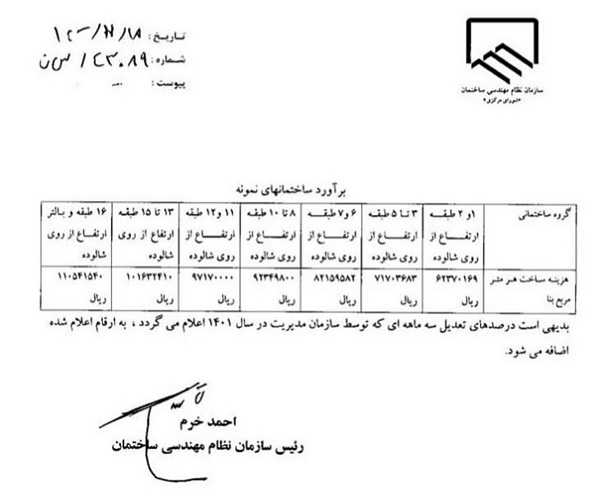 تاریخ :
شماره :
پیوست :
سازمان نظام مهندسی ساختمان
«شورای مرکزی»
برآورد ساختمانهای نمونه
گروه ساختمانی
۱و ۲ طبقه ارتفاع از روی شالوده
۳ تا ۵ طبقه ارتفاع از روی شالوده
۶ و۷ طبقه ارتفاع از روی شالوده
۸ تا ۱۰ طبقه ارتفاع از روی شالوده
۱۱ و۱۲ طبقه ارتفاع از روی شالوده
۱۳ تا ۱۵ طبقه ارتفاع از روی شالوده
۱۶ طبقه و بالتر ارتفاع از روی شالوده
هزینه ساخت هر متر مربع بنا
۶۲۳۷۰۱۶۹ ریال
۷۱۷۰۳۶۸۳ ریال
۸۲۱۵۹۵۸۲ ریال
۹۲۳۴۹۸۰۰ ریال
۹۷۱۷۰۰۰۰ ریال
۱۰۱۶۳۲۴۱۰ ریال
۱۱۰۵۴۱۵۴۰ ریال
بدیهی است درصدهای تعدیل سه ماهه ای که توسط سازمان مدیریت در سال ۱۴۰۱ اعلام می گردد ، به ارقام اعلام شده
اضافه می شود.
احمد خرم
رئیس سازمان نظام مهندسی ساختمان